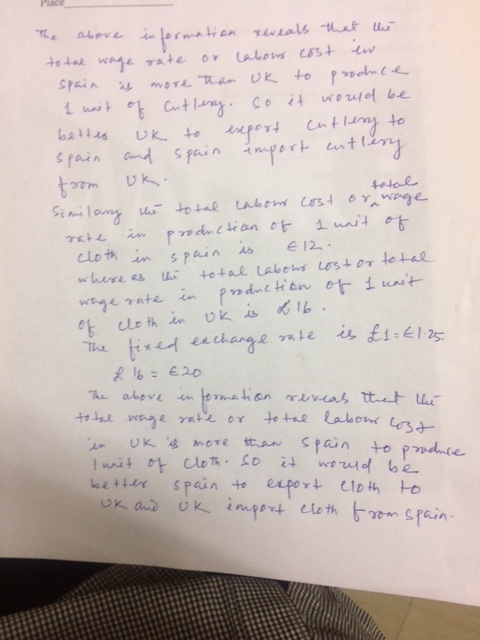 Place
The above information reveals that the
total wage rate or labour cost in
Spain is more than UK to produce
1 unit of cutlery. So it would be
better UK to export cutlery to
Spain and Spain import cutlery
from UK.
Similary the total labour cost or total wage
rate in production of 1 unit of
cloth in Spain is €12.
where as the total labour cost or total
wage rate in production of 1 unit
of cloth in UK is £16.
The fixed exchange rate is £1=€1.25.
£16 = €20
The above information reveals that the
total wage rate or total labour cost
in UK is more than Spain to produce
1 unit of cloth. So it would be
better Spain to export cloth to
UK and UK import cloth from Spain.